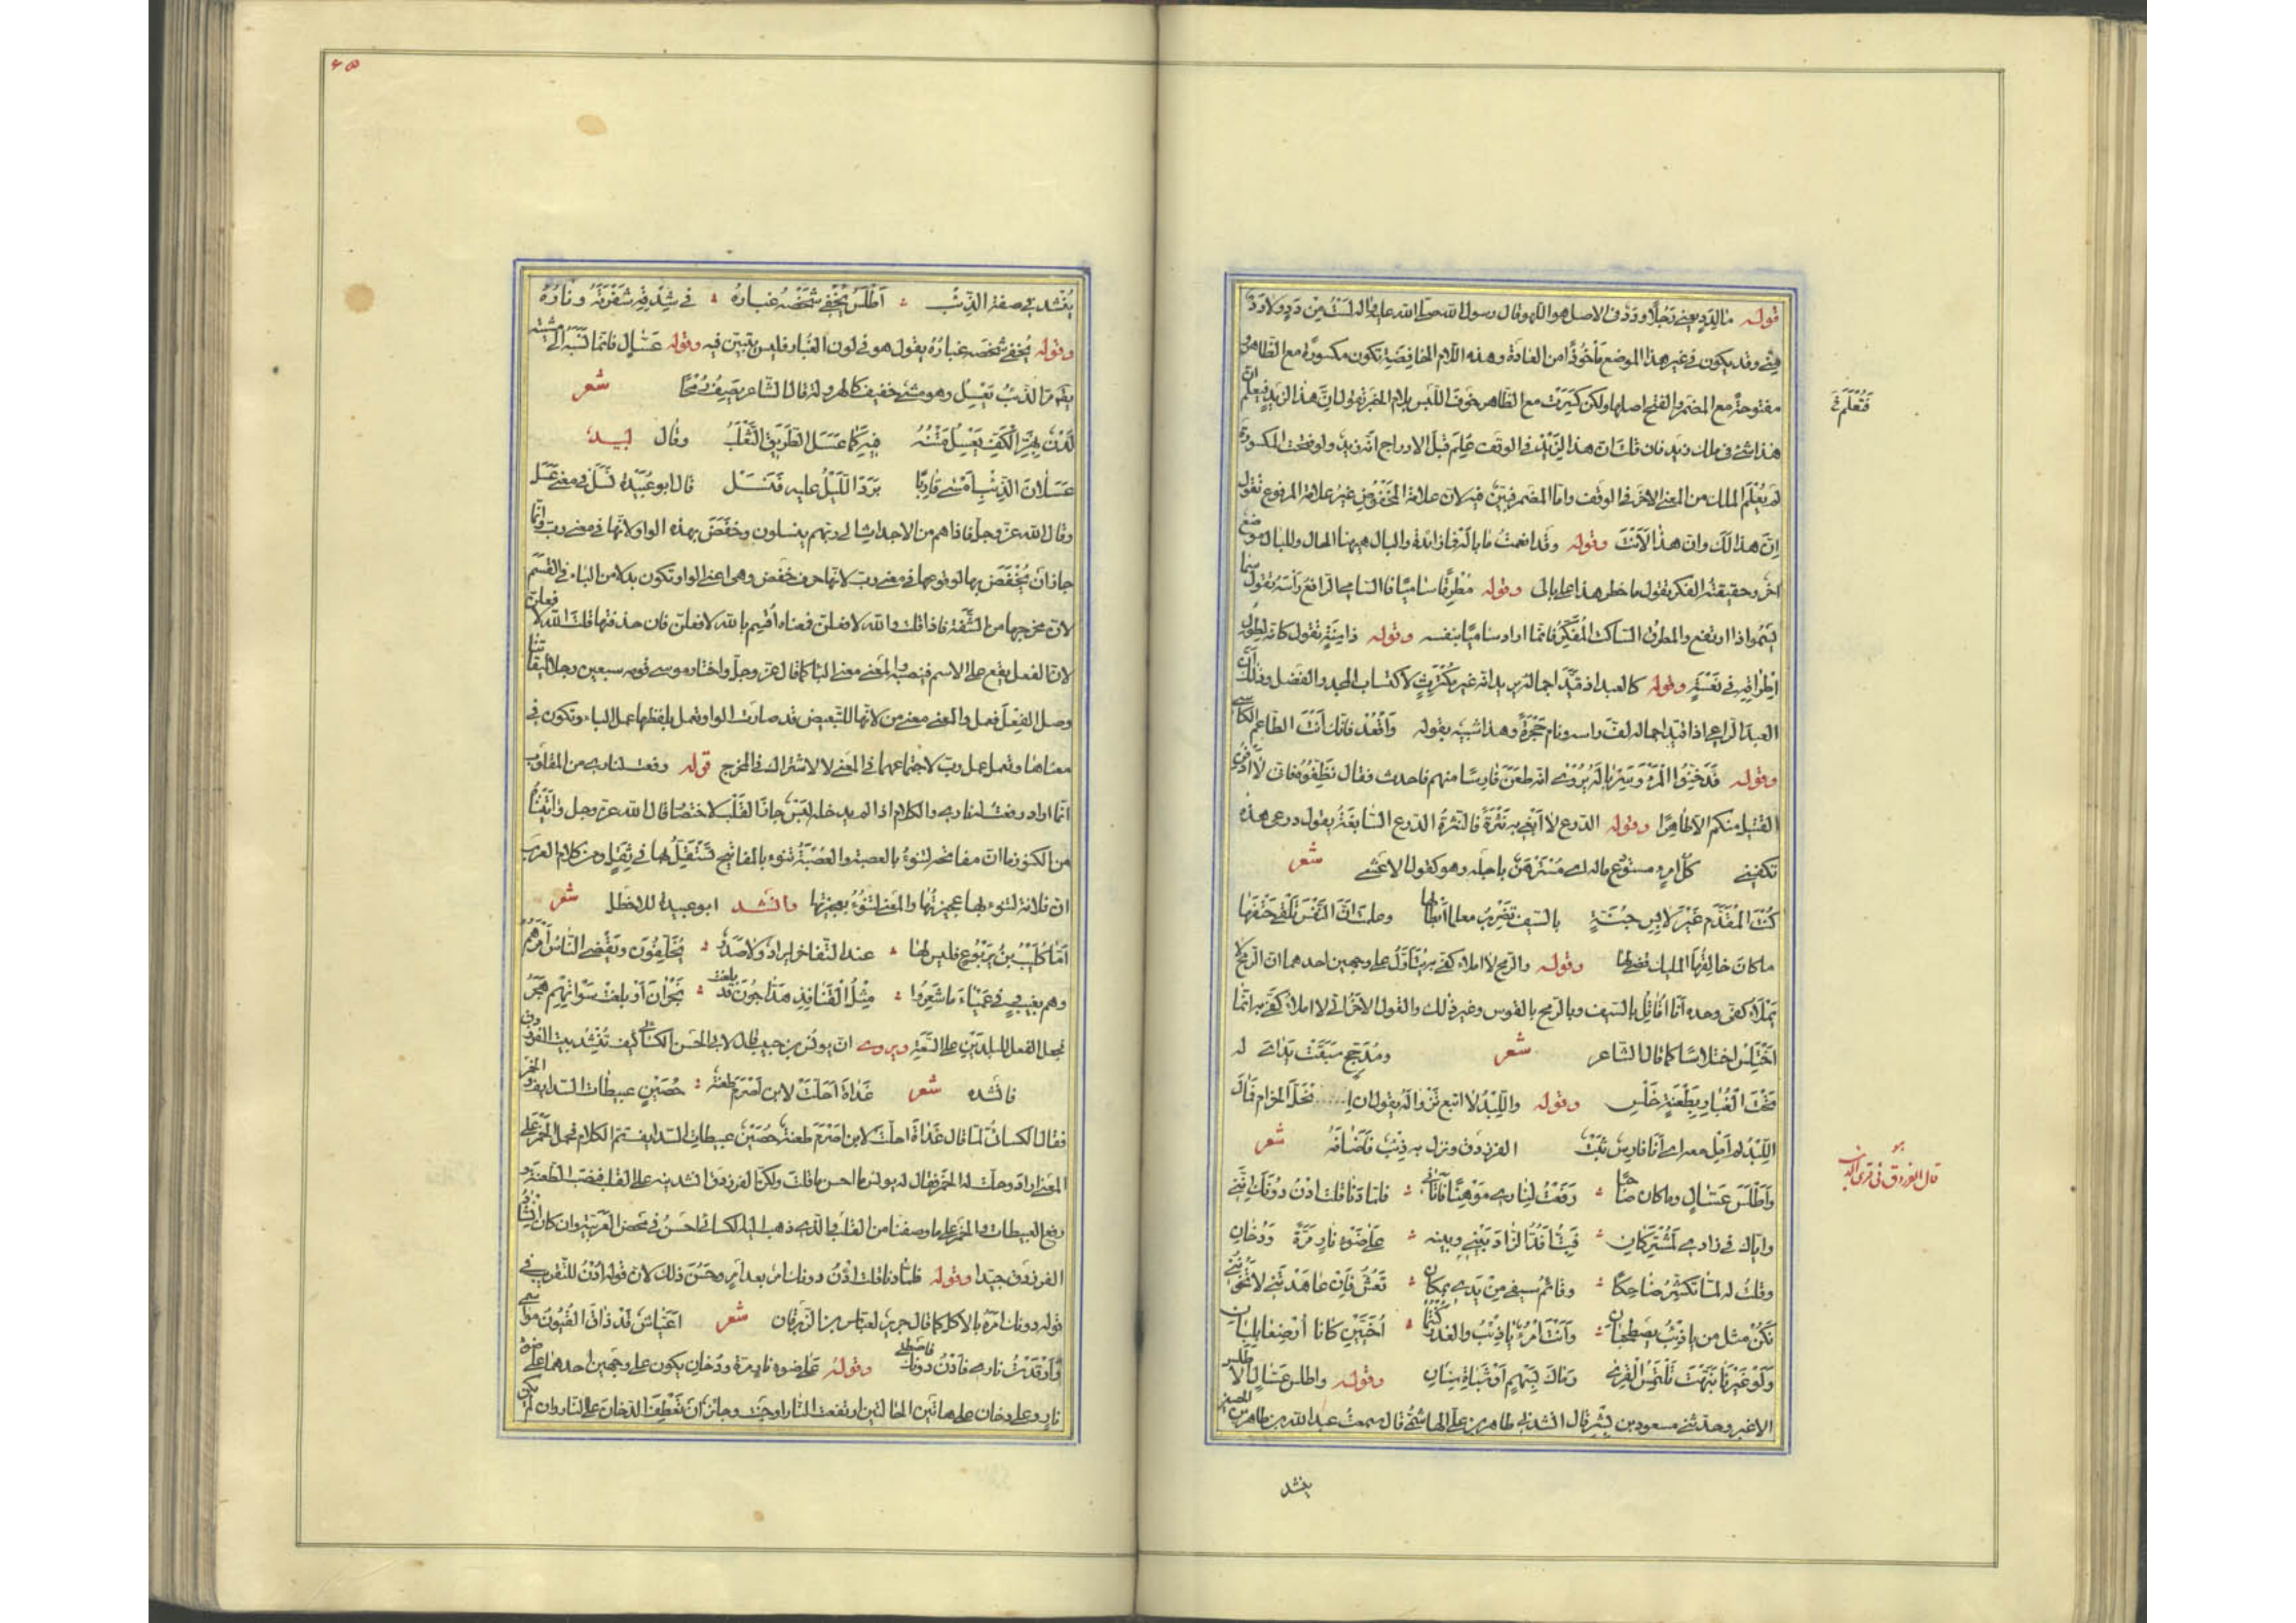 قوله ما الدد يعني رجلا ودد في الاصل هو اللهو قال رسول الله صلى الله عليه واله لست من دد ولا دد
مني وقد يكون في غير هذا الموضع مأخوذا من العادة وهذه اللام الخافضة تكون مكسورة مع الظاهر
مفتوحة مع المضمر والفتح اصلها ولكن كسرت مع الظاهر خوف اللبس بلام الخبر تقول ان هذا لزيد فيعلم ان
هذا شئ في ملك زيد فان قلت ان هذا لزيد في الوقف علم قبل الادراج انه زيد ولو فتحت المكسورة
لم يعلم الملك من المعنى الاخر في الوقف واما المضمر فبين فيه لان علامة المخفوض غير علامة المرفوع تقول
ان هذا لك وان هذا لأنت وقوله وقد انعمت ما باله فما زائدة والبال هيهنا الحال وللبال موضع
اخر وحقيقته الفكر تقول ما خطر هذا على بالى وقوله مطرقا ساميا فالسامي الرافع رأسه يقول سما
يسموا اذا ارتفع والمطرق الساكت المفكر فانما اراد ساميا بنفسه وقوله ذا سنة تقول كانه لطول
اطراقه في نعسة وقوله كالعبد اذ قيد اجماله يريد انه غير مكترث لاكتساب المجد والفضل وذلك أن
العبد الراعي اذا قيد اجماله لف راسه ونام حجرة وهذا شبيه بقوله واقعد فانك انت الطاعم الكاسي
وقوله فدخنوا المرء وسرباله يروى انه طعن فارسا منهم فاحدث فقال نظفوه فان لا أرى
القتيل منكم الا طاهرا وقوله الدرع لا ابغي به نثرة فالنثرة الدرع السابغة يقول درعى هذه
تكفيني كل امرء مستودع ماله اى مسترهن باجله وهو كقول الاعشى شعر
كنت المقدم غير لابس جنة بالسيف تضرب معلما ابطالها وعلمت ان النفس تلقى حتفها
ما كان خالقها المليك قضى لها وقوله والرمح لا املاء كفى به يتأول على وجهين احدهما ان الرمح لا
يملاء كفى وحده انا اقاتل بالسيف وبالرمح بالقوس وغير ذلك والقول الاخر اني لا املاء كفى به انما
اختلس اختلاسا كما قال الشاعر شعر ومدجج سبقت يداى له
تحت الغبار بطعنة خلس وقوله واللبد لا اتبع تزواله يقول ان انحل الحزام فمال
اللبد لم امل معه اى انا فارس ثبت الفرزدق ونزل به ذئب فاضافه شعر
واطلس عسال وما كان صاحبا رفعت لنارى موهنا فاتاني فلما دنا قلت ادن دونك انني
واياك في زادى لمشتركان فبت اقد الزاد بيني وبينه على ضوء نار مرة ودخان
وقلت له لما تكشر ضاحكا وقائم سيفى من يدى بمكان تعش فان عاهدتني لا تخونني
نكن مثل من يا ذئب يصطحبان وانت امرء يا ذئب والغدر كنتما اخيين كانا ارضعا بلبان
ولو غيرنا نبهت تلتمس القرى رماك بسهم او شباة سنان وقوله واطلس عسال الا طلس
الاغبر وحدثني مسعود بن بشر قال انشدني طاهر بن علي الهاشمي قال سمعت عبد الله بن طاهر بن الحسين
ينشد
فتعلم
قال الفرزدق في قرى الذئب
٦٥
ينشد في صفة الذئب اطلس يخفي شخصه غباره في شدقه شفرته وناره
وقوله يخفي شخصه غباره يقول هو في لون الغبار فليس يتبين فيه وقوله عسال فانما نسبه الى مشيته
يقال مر الذئب يعسل وهو مشى خفيف كالهرولة قال الشاعر يصف رمحا شعر
لدن بهز الكف يعسل متنه فيه كما عسل الطريق الثعلب وقال لبيد
عسلان الذئب امسى قاربا برد الليل عليه فنسل قال ابو عبيدة نسل في معنى عسل
وقال الله عز وجل فاذا هم من الاجداث الى ربهم ينسلون وخفض بهذه الواو لانها في معنى رب وانما
جاز ان يخفض بها لوقوعها في معنى رب لانها حرف خفض وهى اعنى الواو تكون بدلا من الباء في القسم
لان مخرجها من الشفة فاذا قلت والله لافعلن فمعناه اقسم بالله لافعلن فان حذفتها قلت الله لا فعلن
لان الفعل يقع على الاسم فينصبه والمعنى معنى البا كما قال عز وجل واختار موسى قومه سبعين رجلا لميقاتنا
وصل الفعل فعمل والمعنى معنى من لانها للتبعيض فقد صارت الواو تعمل بلفظها عمل الباء وتكون في
معناها وتعمل عمل رب لاجتماعهما في المعنى لا لاشتراك في المخرج قوله رفعت لنارى من المقلوب
انما اراد رفعت له نارى والكلام اذا لم يدخله لبس جاز القلب للاختصار قال الله عز وجل واتيناه
من الكنوز ما ان مفاتحه لتنوء بالعصبة والعصبة تنوء بالمفاتيح تستقل بها في ثقل ومن كلام العرب
ان فلانة لتنوء بها عجيزتها والمعنى لتنوء بعجيزتها وانشد ابو عبيدة للاخطل شعر
اما كليب بن يربوع فليس لها عند التفاخر ايراد ولا صدر مخلفون ويقضي الناس امرهم
وهم بغيب في عمياء ما شعروا مثل القنافذ هداجون قد بلغت نجران او بلغت سوآتهم هجر
فجعل الفعل للبلدين على السعة ويروى ان يونس بن حبيب قال لابي الحسن الكسائي كيف تنشد بيت الفرزدق
فانشده شعر غداة احلت لابن اصرم طعنة حصين عبيطات السدايف والخمر
فقال الكسائي لما قال غداة احلت لابن اصرم طعنة حصين عبيطات السدايف تم الكلام فحمل الخمر على
المعنى اراد وحلت له الخمر فقال له يونس ما احسن ما قلت ولكن الفرزدق انشدنيه على القلب فنصب الطعنة و
رفع العبيطات والخمر على ما وصفنا من القلب والذى ذهب اليه الكسائي احسن في محض العربية وان كان انشاد
الفرزدق جيدا وقوله فلما دنا قلت ادن دونك امر بعد امر وحسن ذلك لان قوله ادن للتقريب وفي
قوله دونك امره بالاكل كما قال جرير لعباس بن الزبرقان شعر اعباس قد ذاق القيون مواسمى
واوقدت نارى فادن دونك فاصطلى وقوله على ضوء نار مرة ودخان يكون على وجهين احدهما على ضوء
نار وعلى دخان على هاتين الحالتين ارتفعت النار او خبت وجائز ان تعطف الدخان على النار وان لم يكن